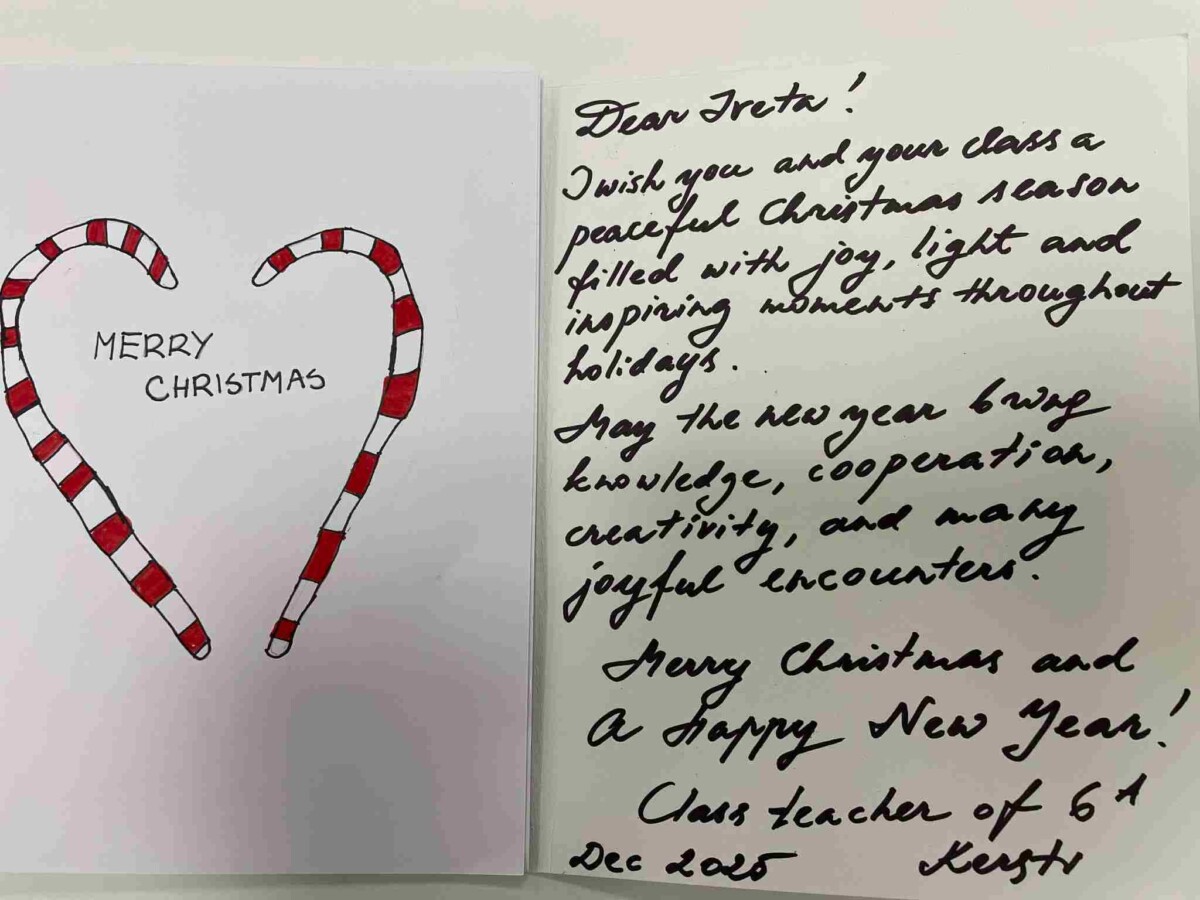 MERRY
CHRISTMAS
Dear Ireta!
I wish you and your class a
peaceful Christmas season
filled with joy, light and
inspiring moments throughout
holidays.
May the new year bring
knowledge, cooperation,
creativity, and many
joyful encounters.
Merry Christmas and
a Happy New Year!
Class teacher of 6A
Dec 2025 Kersti